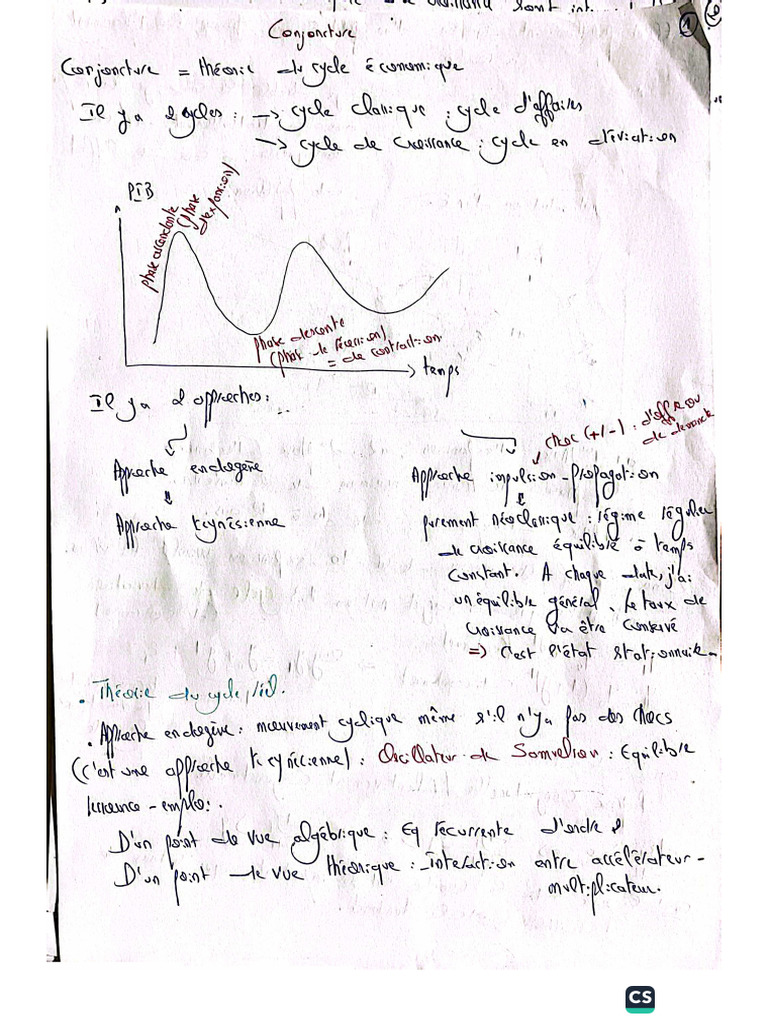 sont int.
1
Conjoncture
Conjoncture = théorie du cycle économique
Il y a 2 cycles : -> cycle classique : cycle d'affaires
-> cycle de croissance : cycle en déviation
PIB
phase ascendante
(phase
d'expansion)
phase descente
(phase de récession)
= de contraction
temps
Il y a 2 approches :
choc (+/-) : d'offre ou
de demande
Approche endogène
Approche impulsion-propagation
Approche keynésienne
purement néoclassique : régime régulier
de croissance équilibré à temps
constant. A chaque date, j'ai
un équilibre général. Le taux de
croissance va être conservé
=> C'est l'état stationnaire.
. Théorie du cycle
. Approche endogène : mouvement cyclique même s'il n'y a pas des chocs
(c'est une approche keynésienne) : Oscillateur de Samuelson : Equilibre
emploi.
D'un point de vue algébrique : Eq récurrente d'ordre 2
D'un point de vue théorique : Interaction entre accélérateur-
multiplicateur.
CS